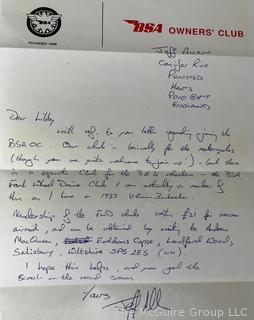 BSA OWNERS' CLUB
FOUNDED 1958
Jeff Allen
Conifer Rise
England
Dear Libby
with ref. to your letter regarding joining the
BSAOC. Our club is basically for the motorcycles
(though you are quite welcome to join us!) - but there
is a separate Club for the 3 & 4 wheelers - the BSA
Front Wheel Drive Club. I am actually a member of
this as I have a 1935
Membership of the FWD club costs £21 for overseas
airmail, and can be obtained by writing to Andrew
MacQueen, Copse, Landford Wood,
Salisbury, Wiltshire SP5 2ES (UK).
I hope this helps, and you get the
Scout on the road soon
Yours
The McGuire Group LLC